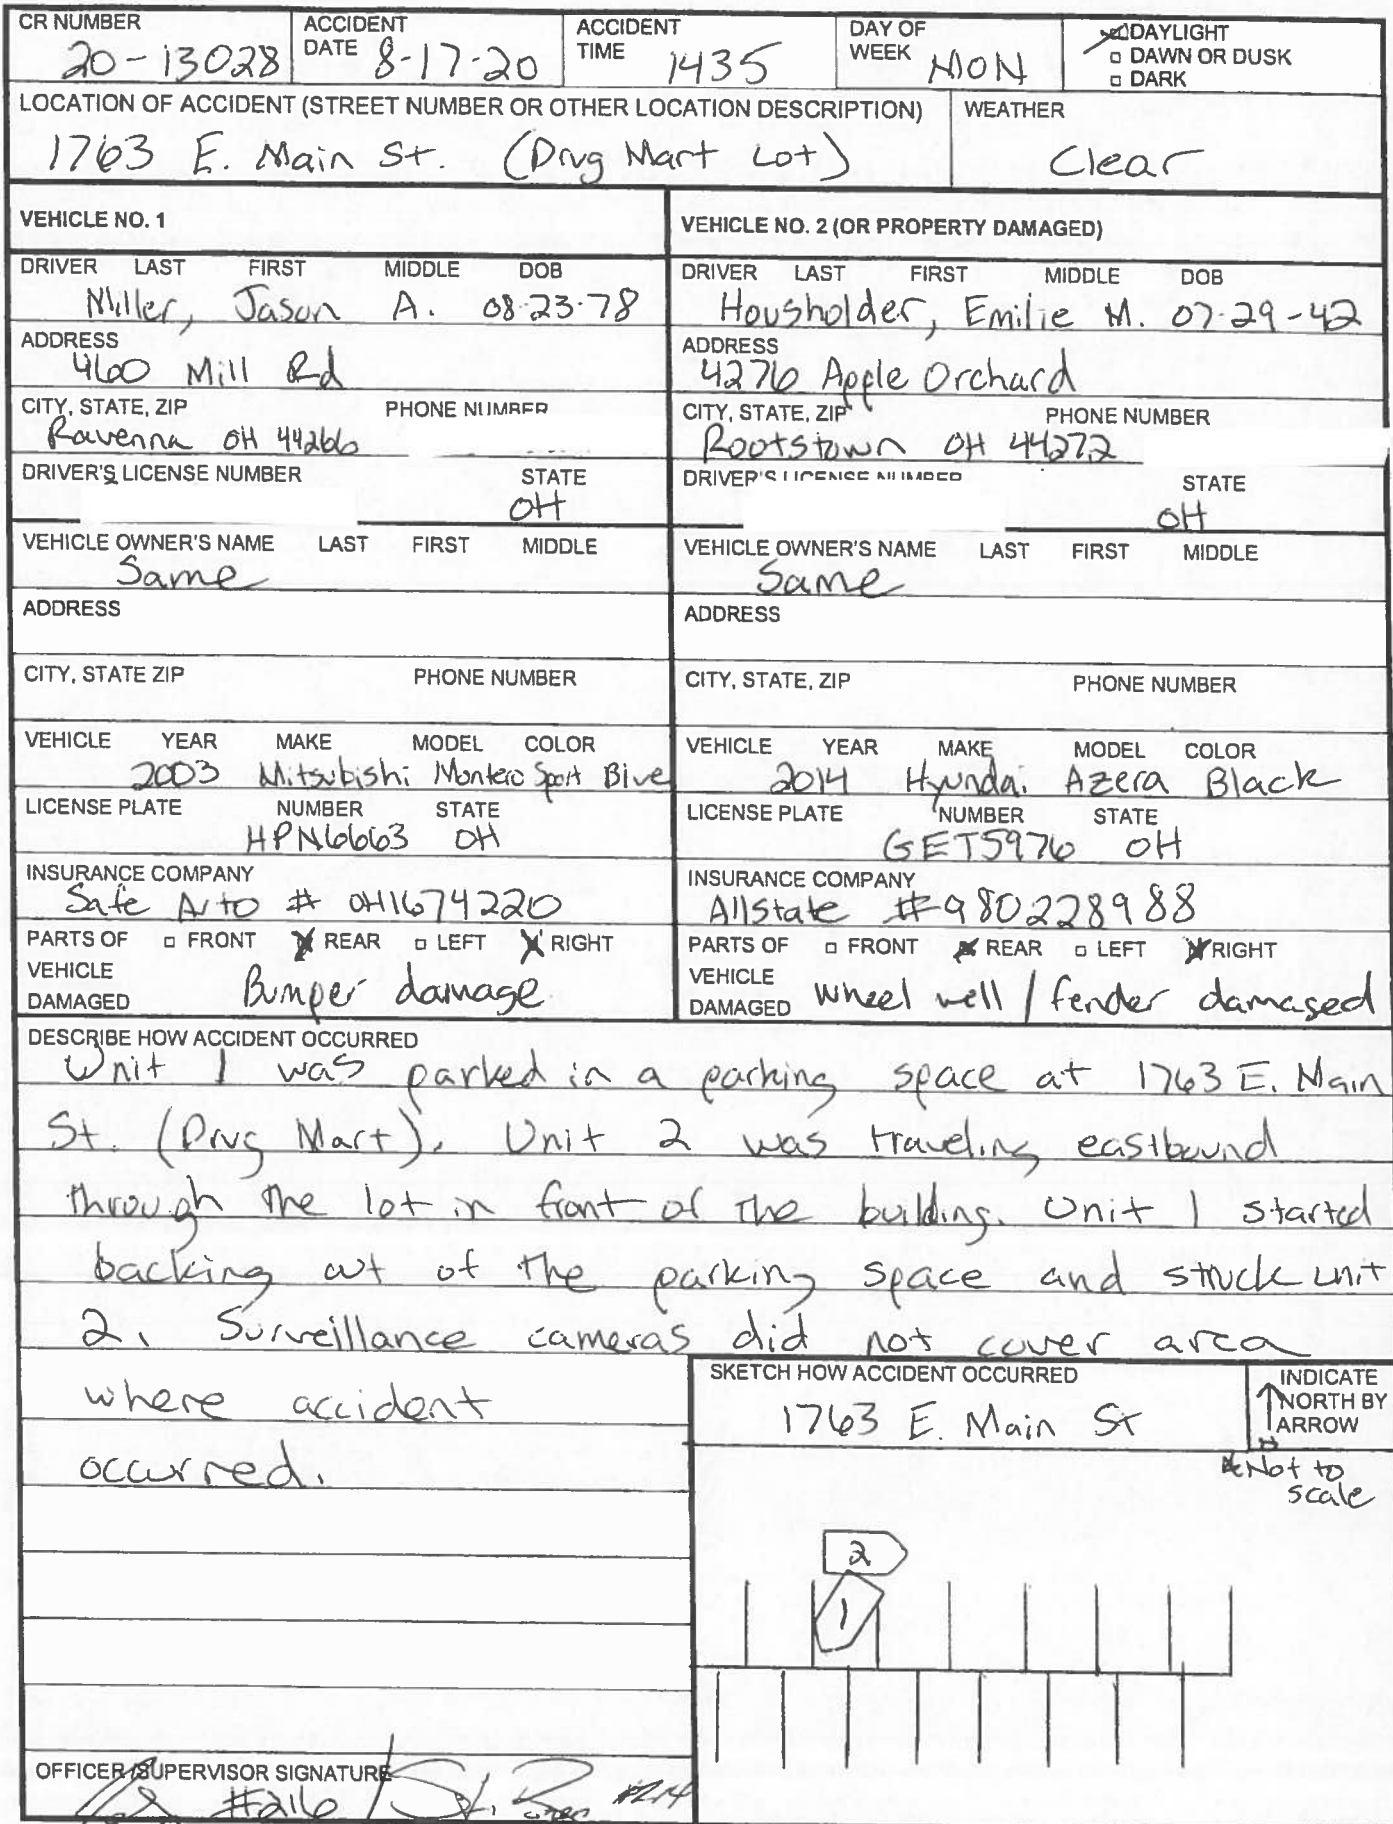 CR NUMBER ACCIDENT DATE ACCIDENT TIME DAY OF WEEK DAYLIGHT
20-13028 8-17-20 1435 MON DAWN OR DUSK
DARK
LOCATION OF ACCIDENT (STREET NUMBER OR OTHER LOCATION DESCRIPTION) WEATHER
1763 E. Main St. (Drug Mart Lot) Clear
VEHICLE NO. 1
DRIVER LAST FIRST MIDDLE DOB
Miller, Jason A. 08-23-78
ADDRESS
460 Mill Rd
CITY, STATE, ZIP PHONE NUMBER
Ravenna OH 44266
DRIVER'S LICENSE NUMBER STATE
OH
VEHICLE OWNER'S NAME LAST FIRST MIDDLE
Same
ADDRESS
CITY, STATE ZIP PHONE NUMBER
VEHICLE YEAR MAKE MODEL COLOR
2003 Mitsubishi Montero Sport Blue
LICENSE PLATE NUMBER STATE
HPN6663 OH
INSURANCE COMPANY
Safe Auto # OH1674220
PARTS OF FRONT REAR LEFT RIGHT
VEHICLE
DAMAGED Bumper damage
VEHICLE NO. 2 (OR PROPERTY DAMAGED)
DRIVER LAST FIRST MIDDLE DOB
Housholder, Emilie M. 07-29-42
ADDRESS
4276 Apple Orchard
CITY, STATE, ZIP PHONE NUMBER
Rootstown OH 44272
DRIVER'S LICENSE NUMBER STATE
OH
VEHICLE OWNER'S NAME LAST FIRST MIDDLE
Same
ADDRESS
CITY, STATE, ZIP PHONE NUMBER
VEHICLE YEAR MAKE MODEL COLOR
2014 Hyundai Azera Black
LICENSE PLATE NUMBER STATE
GET5976 OH
INSURANCE COMPANY
Allstate #980228988
PARTS OF FRONT REAR LEFT RIGHT
VEHICLE
DAMAGED wheel well / fender damaged
DESCRIBE HOW ACCIDENT OCCURRED
Unit 1 was parked in a parking space at 1763 E. Main
St. (Drug Mart). Unit 2 was traveling eastbound
through the lot in front of the building. Unit 1 started
backing out of the parking space and struck unit
2. Surveillance cameras did not cover area
where accident
occurred.
SKETCH HOW ACCIDENT OCCURRED
1763 E. Main St
INDICATE
NORTH BY
ARROW
N
*Not to
scale
2
1
OFFICER/SUPERVISOR SIGNATURE
#216 / #214